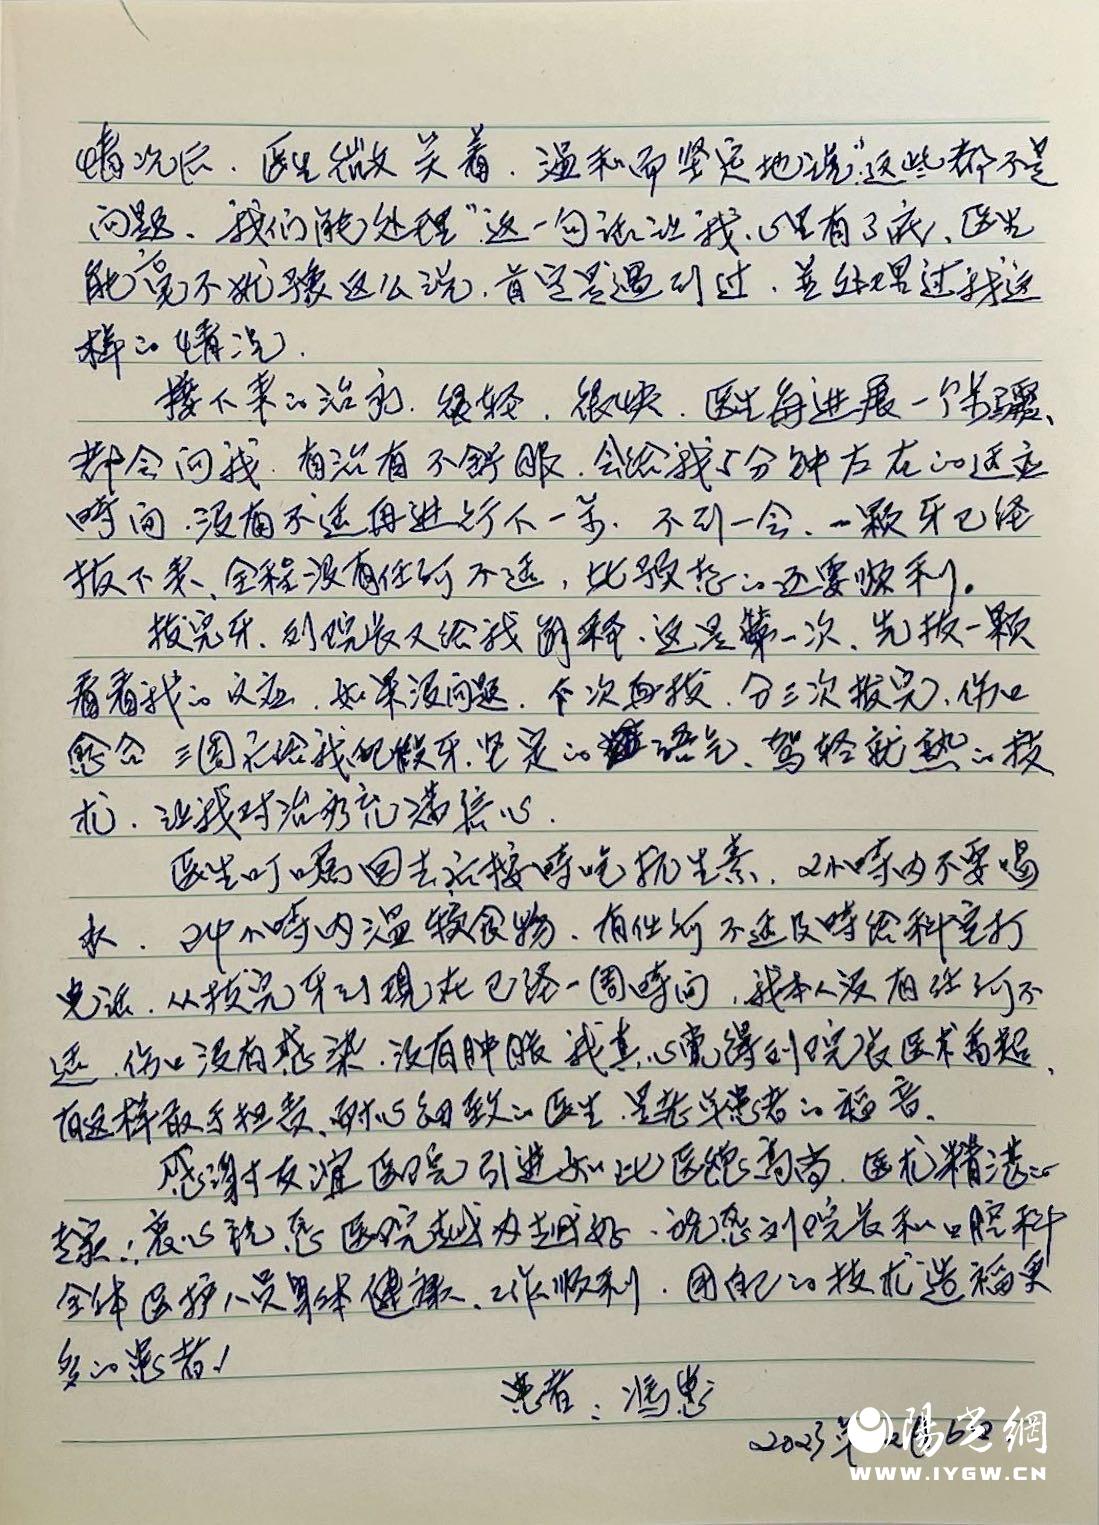 情况后，医生微笑着，温和而坚定地说"这些都不是
问题、我们能处理"这一句话让我心里有了底、医生
能毫不犹豫这么说，肯定是遇到过，并处理过我这
样的情况。
接下来的治疗，很轻，很快，医生每进展一个步骤、
都会问我，有没有不舒服，会给我5分钟左右的适应
時间，没有不适再进行下一步，不到一会、一颗牙已经
拔下来、全程没有任何不适，比预想的还要顺利。
拔完牙，刘院长又给我解释，这是第一次、先拔一颗
看看我的反应，如果没问题，下次再拔，分三次拔完，伤口
愈合三周后给我配假牙，坚定的语气、驾轻就熟的技
术，让我对治疗充满信心。
医生叮嘱回去后按時吃抗生素，2小時内不要喝
水，24小時内温软食物，有任何不适及時给科室打
电话，从拔完牙到现在已经一周時间，我本人没有任何不
适，伤口没有感染，没有肿胀，我真心觉得刘院长医术高超、
有这样敢于担责、耐心细致的医生，是老年患者的福音、
感谢友谊医院引进如此医德高尚，医术精湛的
专家！衷心祝愿医院越办越好，祝愿刘院长和口腔科
全体医护人员身体健康、工作顺利，用自己的技术造福更
多的患者！
患者：冯
2023年 月6日
陽光網
WWW.IYGW.CN